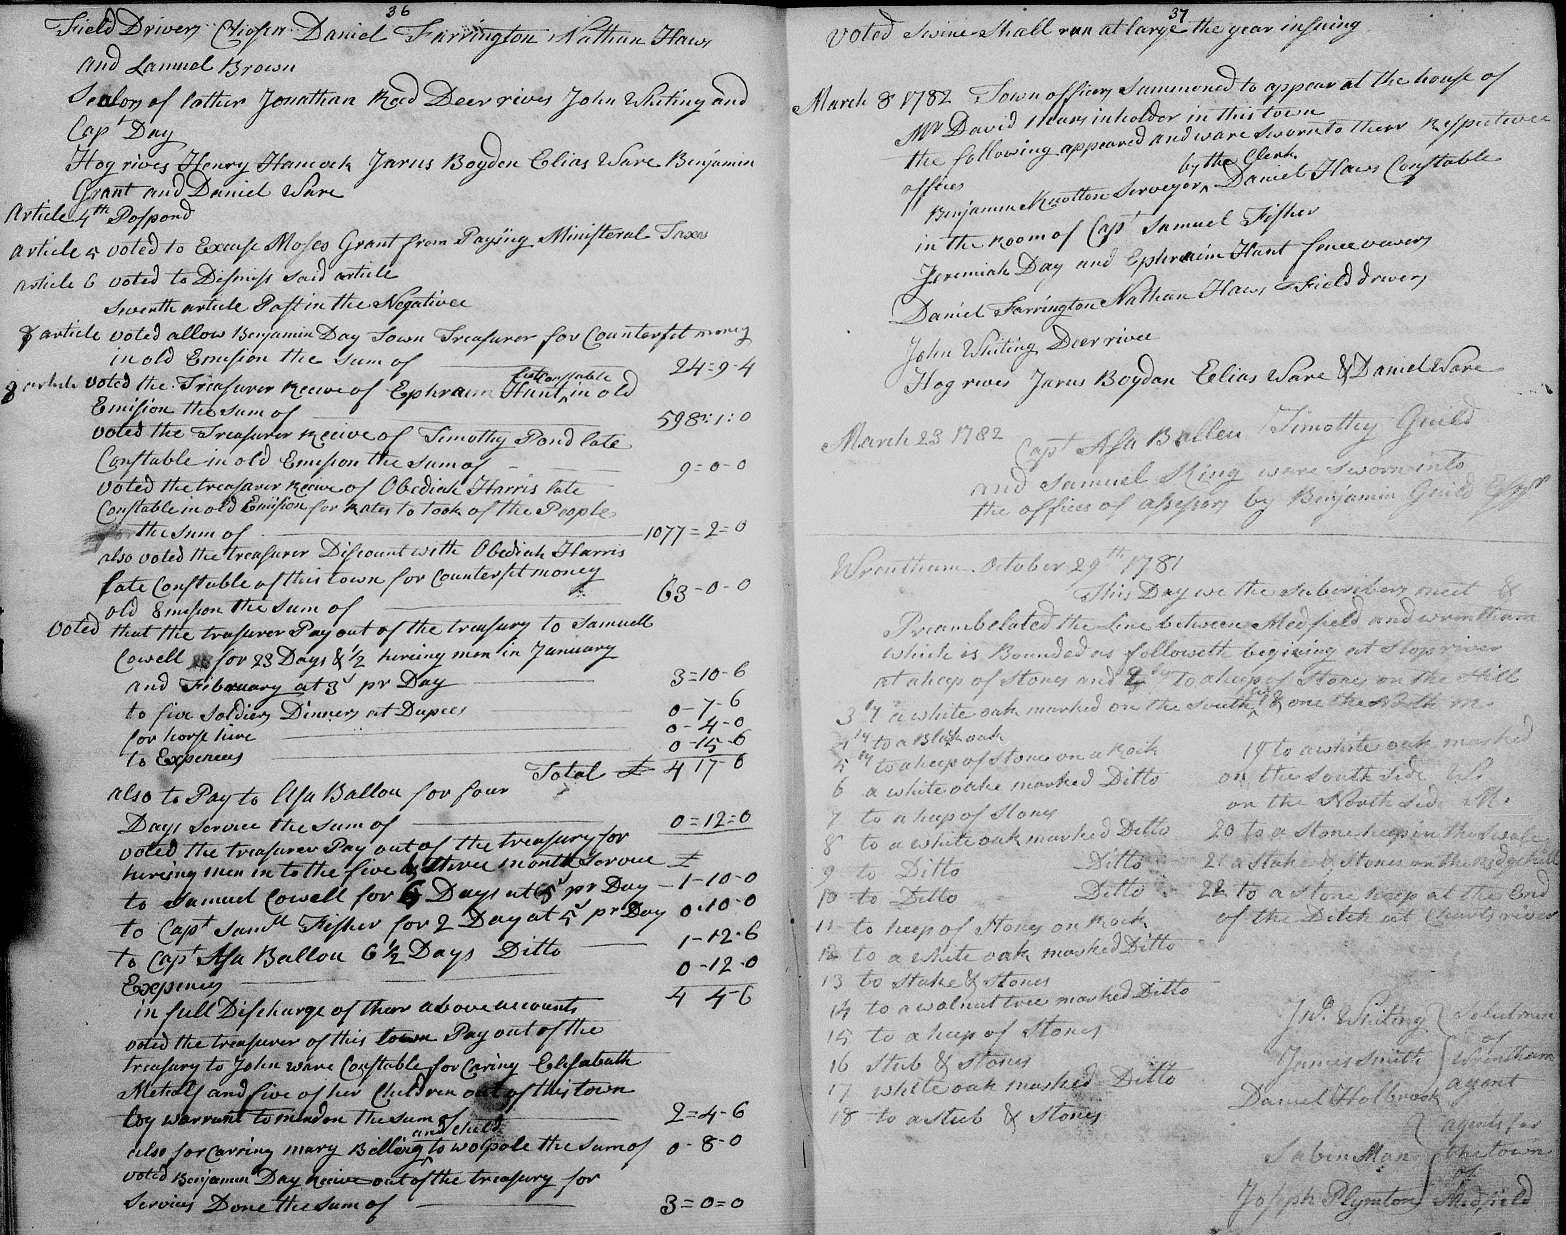 36
Field Drivers Chosen Daniel Farrington Nathan Haws
and Samuel Brown
Sealors of lather Jonathan Read Deer rives John Whiting and
Capt Day
Hog rives Henry Hancock Jarus Boyden Elias Ware Benjamin
Grant and Daniel Ware
Article 4th Pospond
article 5 voted to Excuse Moses Grant from Paying Ministeral Taxes
article 6 voted to Dismiss said article
Seventh article Past in the Negativee
8 article voted allow Benjamin Day Town Treasurer for Counterfit money
in old Emission the sum of 24=9-4
9 article voted the Treasurer Receive of Ephraim Hunt late Constable in old
Emission the sum of 598=1=0
voted the Treasurer Receive of Timothy Pond late
Constable in old Emission the sum of 9=0-0
voted the treasurer Receive of Obediah Harris late
Constable in old Emission for Rates to took of the People
the sum of 1077=2=0
also voted the treasurer Discount with Obediah Harris
late Constable of this town for Counterfit money
old Emission the sum of 63-0-0
voted that the treasurer Pay out of the treasury to Samuell
Cowell for 23 Days & 1/2 hireing men in January
and February at 3s pr Day 3=10-6
to five Soldiers Dinners at Dupees 0-7-6
for horse hire 0-4-0
to Expences 0-15-6
Total £ 4 17-6
also to Pay to Asa Ballou for four
Days Service the sum of 0=12=0
voted the treasurer Pay out of the treasury for
hireing men in to the five & three month Servce £
to Samuel Cowell for 6 Days at 5s pr Day 1-10-0
to Capt Samll Fisher for 2 Day at 5s pr Day 0-10-0
to Capt Asa Ballou 6 1/2 Days Ditto 1-12-6
Expences 0-12-0
in full Discharge of thear above accounts 4 4-6
voted the treasurer of this town Pay out of the
treasury to John Ware Constable for Caring Elisabath
Metcalf and five of her Children out of this town
by warrant to mendon the sum of 2=4-6
also for Carring mary Billing and Child to wolpole the sum of 0-8-0
voted Benjamin Day Receive out of the treasury for
Services Done the sum of 3=0=0
37
voted Swine Shall run at large the year insuing
March 8 1782 Town officers Summoned to appear at the house of
Mr David Mears inholder in this town
the following appeared and ware sworn to thear Respectivee
offices by the Clerk
Benjamin Knolton Serveyor Daniel Haws Constable
in the Room of Capt Samuel Fisher
Jeremiah Day and Ephraim Hunt fence vewers
Daniel Farrington Nathan Haws Field drivers
John Whiting Deer rivee
Hog rives Jarus Boydan Eelias Ware & Daniel Ware
March 23 1782 Capt Asa Ballou Timothy Guild
and Samuel King ware sworn into
the offices of assessors by Benjamin Guild Esqr
Wrentham October 29th 1781
This Day we the Subscribers meet &
Preambelated the Line between Medfield and wrentham
which is Bounded as followeth begining at Stop river
at a heep of Stones and 2ly to a heep of Stones on the Hill
3ly a white oak marked on the South W & one the North M
4ly to a Black oak
5ly to a heep of Stones on a Rock
6 a white oake marked Ditto
7 to a heep of Stones
8 to a white oak marked Ditto
9 to Ditto Ditto
10 to Ditto Ditto
11 to heep of Stones on Rock
12 to a white oak marked Ditto
13 to Stake & Stones
14 to a walnut tree marked Ditto
15 to a heep of Stones
16 Stub & Stones
17 white oak marked Ditto
18 to a stub & Stones
19 to a white oak marked
on the South Side W.
on the North Side M.
20 to a Stone heep in the Swale
21 a Stake & Stones on the Ridge hill
22 to a Stone heep at the End
of the Ditch at Charls river
Jno. Whiting
James Smith
Daniel Holbrook
Selectmen
of
Wrentham
agent
Sabin Man
Joseph Plymton
agents for
the town
of
Medfield